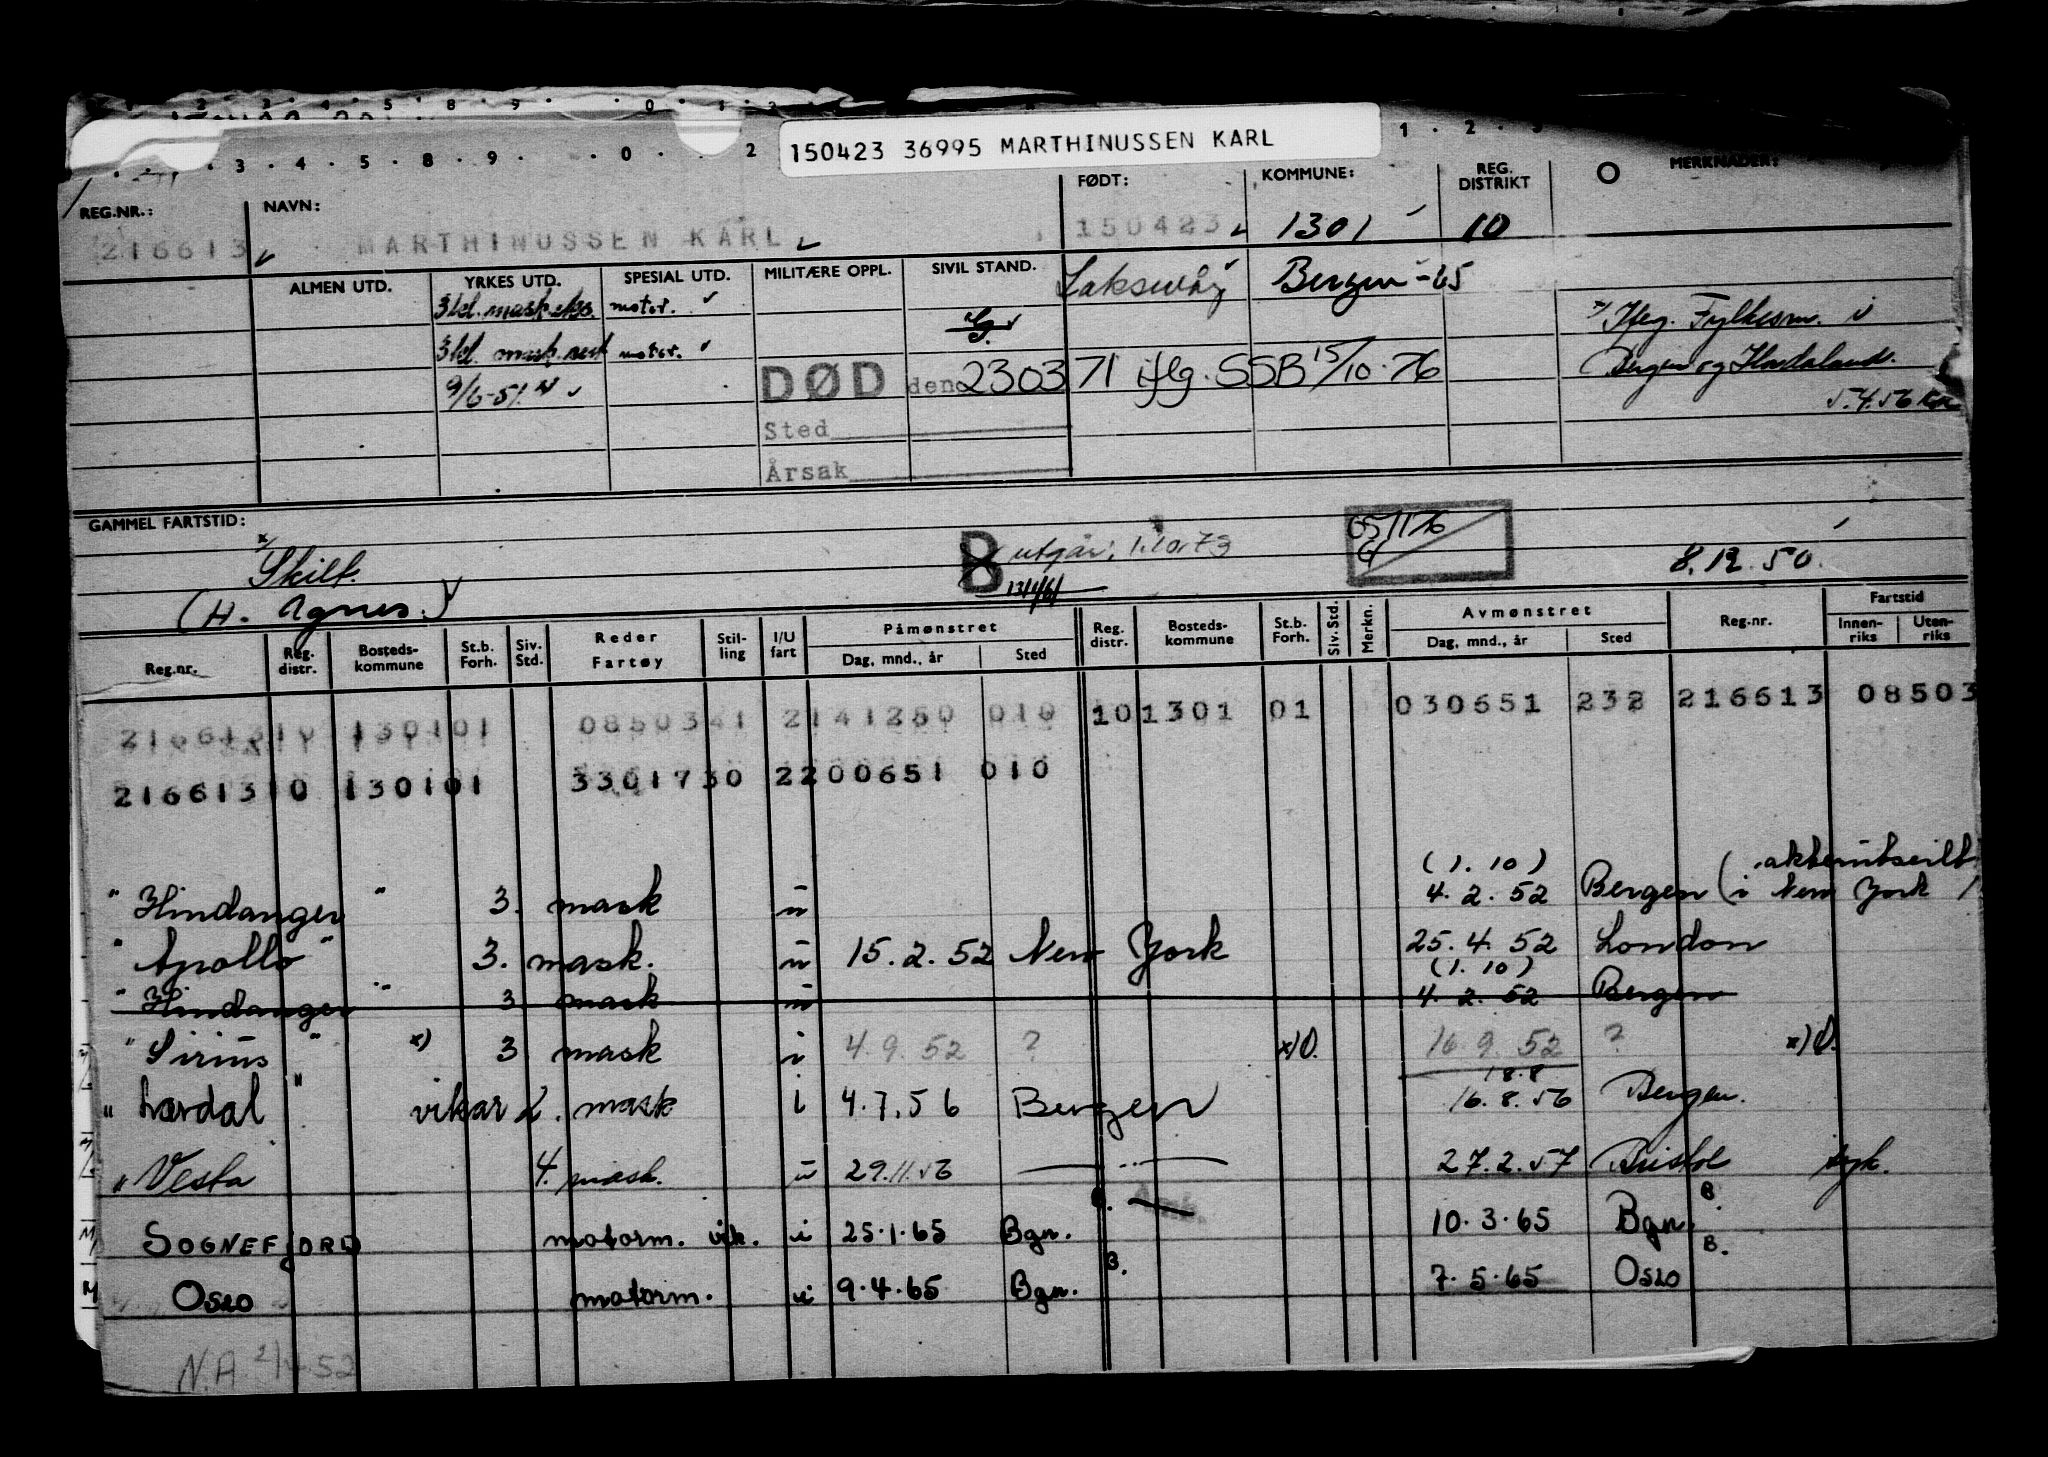 150423 36995 MARTHINUSSEN KARL
REG.NR.: NAVN: FØDT: KOMMUNE: REG. DISTRIKT MERKNADER:
216613 MARTHINUSSEN KARL 150423 1301 10
ALMEN UTD. YRKES UTD. SPESIAL UTD. MILITÆRE OPPL. SIVIL STAND. Laksevåg Bergen -65
3 kl. mask.eks. motor. ug
3 kl. mask. sert motor.
9/6-51
x) Iflg. Fylkesm. i
Bergen og Hordaland.
5.4.56
DØD den 230371 iflg. SSB 15/10.76
Sted
Årsak
GAMMEL FARTSTID:
x) Skilt.
(H. Agnes.)
B utgår, 1.10.73
13/4/61
05/11/76
8.12.50.
Reg.nr. Reg. distr. Bosteds-kommune St.b. Forh. Siv. Std. Reder Fartøy Stil-ling I/U fart Påmønstret Dag, mnd., år Sted Reg. distr. Bosteds-kommune St.b. Forh. Siv. Std. Merkn. Avmønstret Dag, mnd., år Sted Reg.nr. Fartstid Innen-riks Uten-riks
21661310 130101 0850341 2141250 010 101301 01 030651 232 216613 08503
21661310 130101 3301730 2200651 010
(1.10) akterutseilt
" Hindanger " 3. mask u 4.2.52 Bergen (i New York)
" Apollo " 3. mask. u 15.2.52 New York 25.4.52 London
(1.10)
" Hindanger " 3 mask u 4.2.52 Bergen
" Sirius " x) 3 mask i 4.9.52 ? x) O. 16.9.52 ? x) O.
18.8
" Lærdal " vikar 2. mask i 4.7.56 Bergen 16.8.56 Bergen.
" Vesta 4. mask. u 29.11.56 — " — 27.2.57 Bristol syk.
SOGNEFJORD motorm. vik. i 25.1.65 Bgn. B. 10.3.65 Bgn. B.
OSLO motorm. i 9.4.65 Bgn. B. 7.5.65 OSLO B.
N.A.